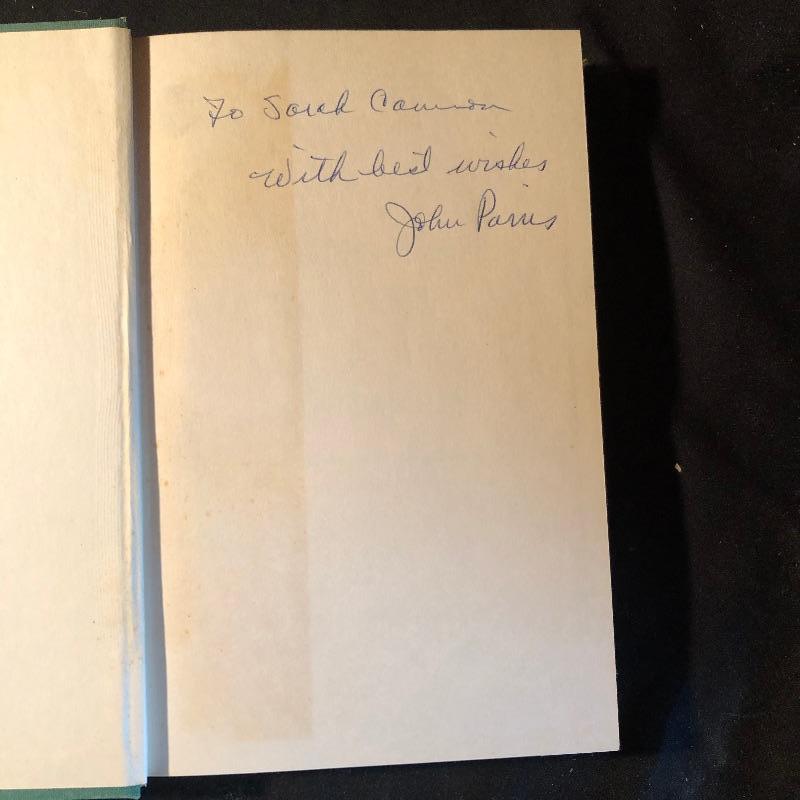 To Sarah Cannon
With best wishes
John Parris